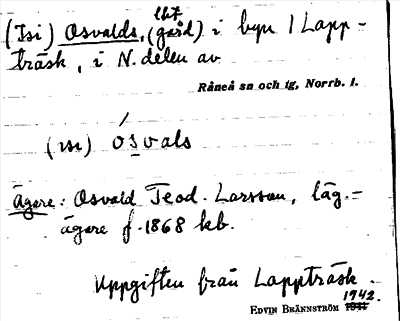 (Isi) Osvalds, (lht gård) i byn i Lapp-
träsk, i N. delen av
Råneå sn och tg, Norrb. l.
(ısı) ósvals
Ägare: Osvald Teod. Larsson, läg.-
ägare f. 1868 kb.
Uppgiften från Lappträsk.
1942.
EDVIN BRÄNNSTRÖM 1941